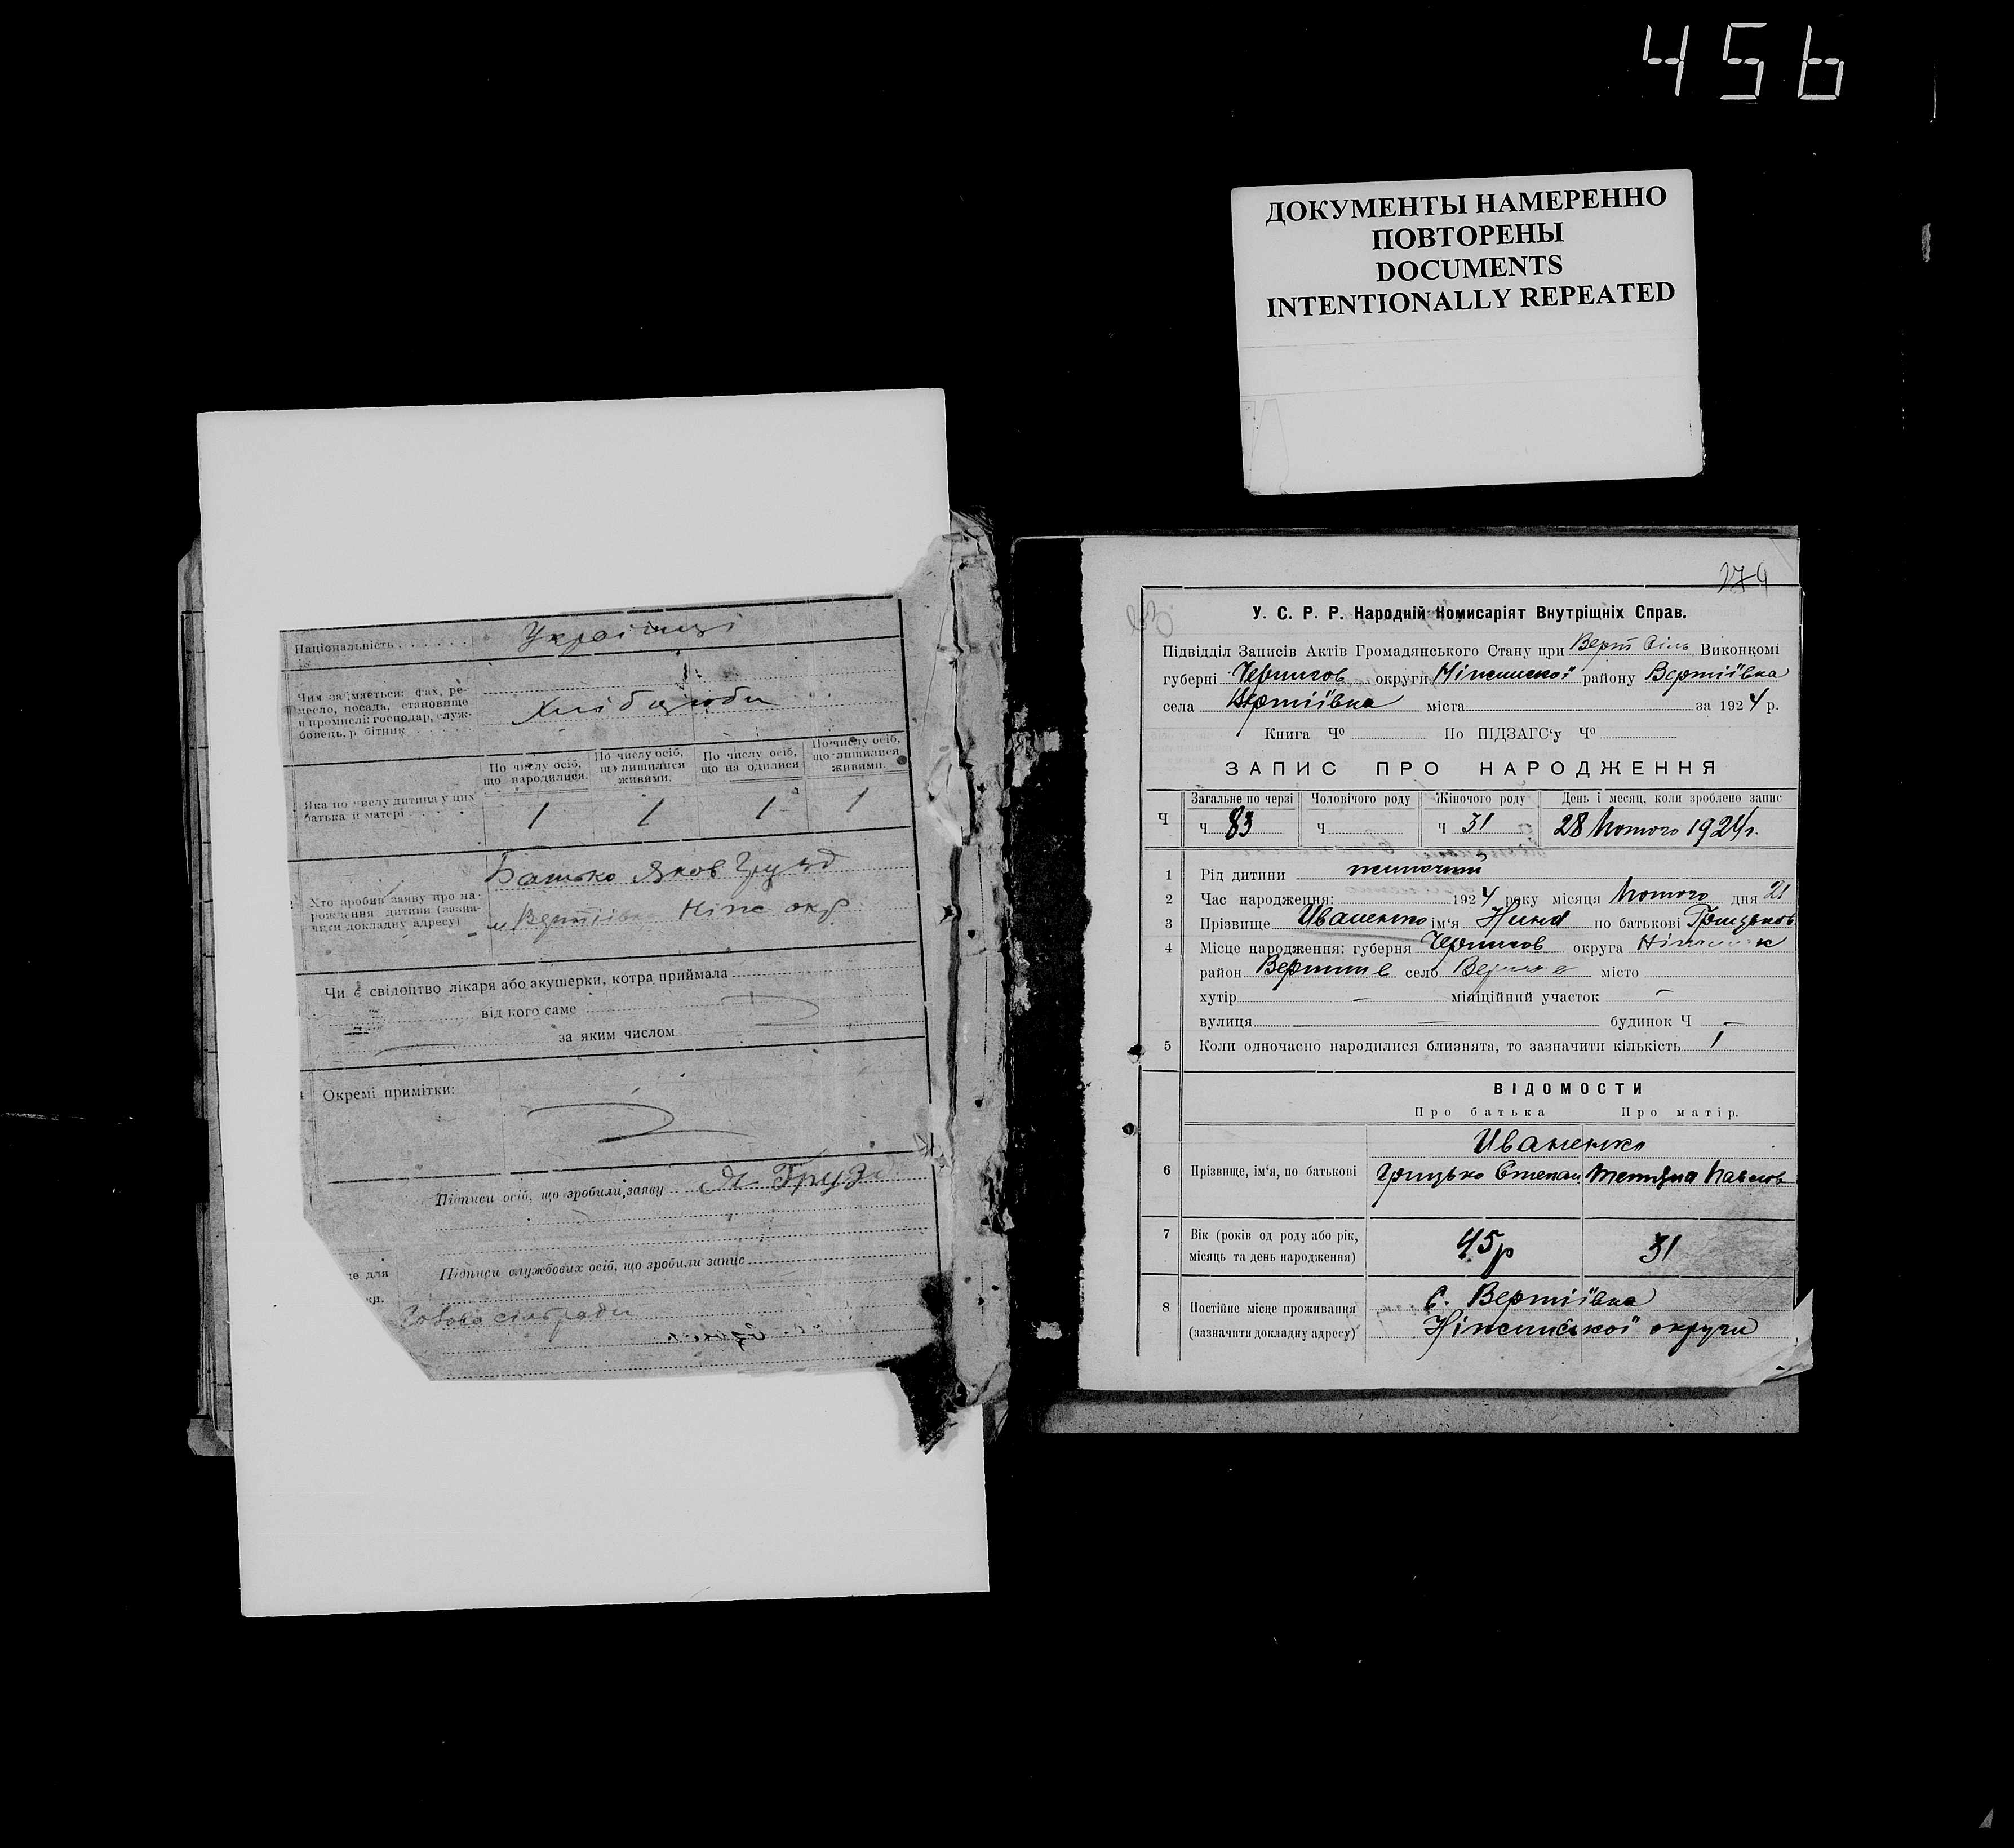 456
ДОКУМЕНТЫ НАМЕРЕННО
ПОВТОРЕНЫ
DOCUMENTS
INTENTIONALLY REPEATED
Національність Українці
Чим займається: фах, ре-
месло, посада, становище
в промислі: господар, служ-
бовець, робітник
Хлібороби
По числу осіб, що народилися.
По числу осіб, що лишилися живими.
По числу осіб, що народилися
По числу осіб, що лишилися живими.
Яка по числу дитина у цих
батька й матері 1 1 1 1
Хто зробив заяву про на-
рождення дитини (зазна-
чити докладну адресу)
Батько Яков Грузд
м Вертіївка Ніж окр
Чи є свідоцтво лікаря або акушерки, котра приймала
від кого саме
за яким числом
Окремі примітки:
Підписи осіб, що зробили заяву Я Грузд
Підписи службових осіб, що зробили запис
Голова сільради
279
У. С. Р. Р. Народній Комисаріят Внутрішніх Справ.
Підвідділ Записів Актів Громадянського Стану при Верт Сіль Виконкомі
губерні Чернигов округи Ніжинської району Вертіївка
села Вертіївка міста за 1924 р.
Книга Ч⁰ По ПІДЗАГС‘у Ч⁰
ЗАПИС ПРО НАРОДЖЕННЯ
Ч Загальне по черзі Чоловічого роду Жіночого роду День і месяц, коли зроблено запис
ч 83 ч ч 31 28 Лютого 1924 р.
1 Рід дитини жиночий
2 Час народження: 1924 року місяця Лютого дня 21
3 Прізвище Иваненко ім‘я Нина по батькові Грицьков
4 Місце народження: губерня Чернигов округа Ніжинськ
район Вертиив село місто
хутір — міліційний участок —
вулиця — будинок Ч —
5 Коли одночасно народилися близнята, то зазначити кількість 1
ВІДОМОСТИ
Про батька Про матір.
Иваненко
6 Прізвище, ім‘я, по батькові Грицько Степан Тетяна Павлов
7 Вік (років од роду або рік,
місяць та день народження) 45р 31
8 Постійне місце проживання
(зазначити докладну адресу)
С. Вертіївка
Ніжинської округи